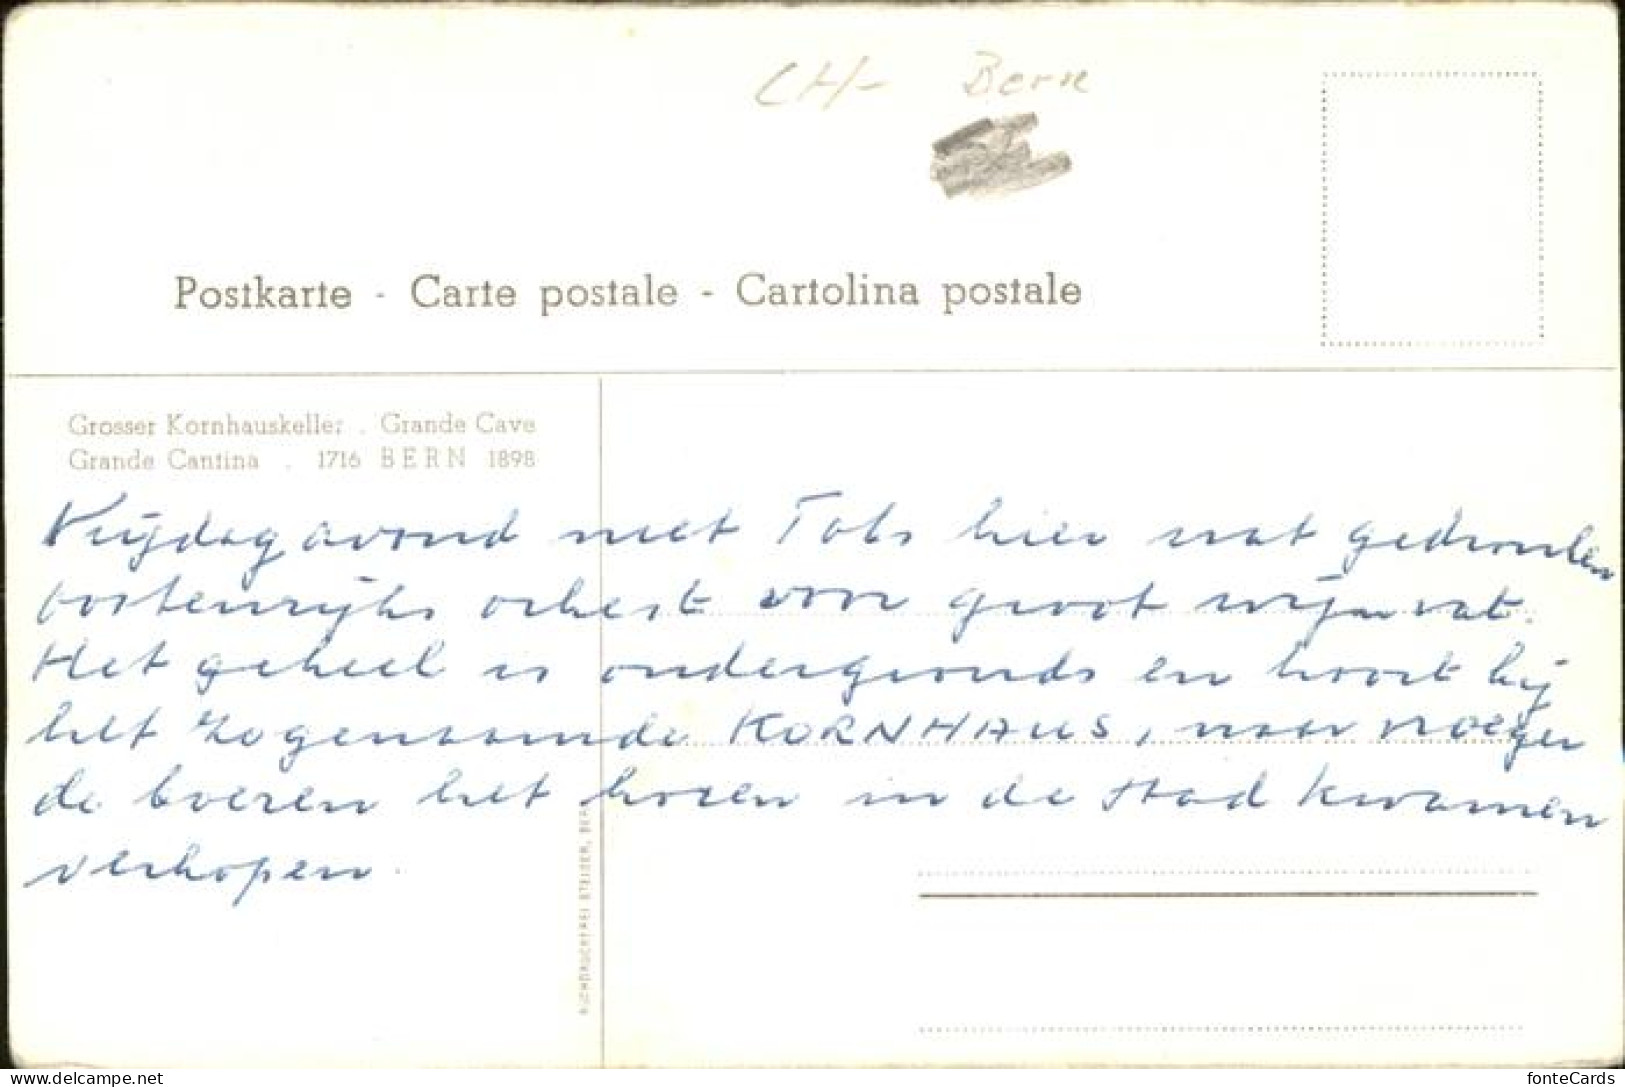 CH- Bern
Postkarte - Carte postale - Cartolina postale
Grosser Kornhauskeller . Grande Cave
Grande Cantina . 1716 BERN 1898
Vrijdagavond met hier wat gedronken
oostenrijks orkest voor groot wijnvat.
Het geheel is ondergronds en hoort bij
het zogenaamde KORNHAUS, waar vroeger
de boeren het koren in de stad kwamen
verkopen.
BUCHDRUCKEREI STEIGER, BERN
delcampe.net
fonteCards